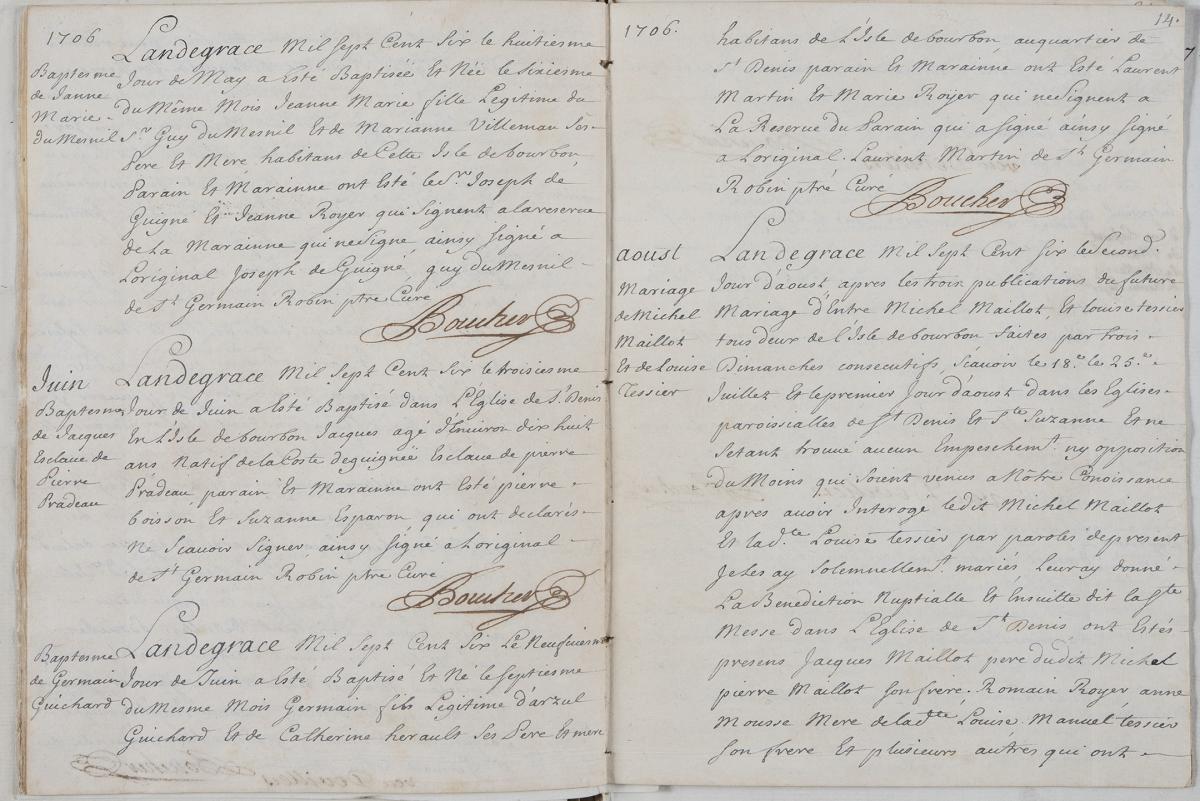 1706
Landegrace Mil Sept Cent Six le huitiesme
Baptesme
de Janne
Marie
du Mesnil
Jour de May a Esté Baptisée Et Née le Sixiesme
du Même Mois Jeanne Marie fille Legitime du
Sr. Guy du Mesnil Et de Marianne Villeman Ses
Pere Et Mere habitans de Cette Isle de bourbon
Parain Et Marainne ont Esté le Sr. Joseph de
Guigné Et Jeanne Royer qui Signent a la reserve
de La Marainne qui ne Signe ainsy Signé a
Loriginal Joseph de Guigné, guy du Mesnil -
de St. Germain Robin ptre Cure
Boucher
Juin
Landegrace Mil Sept Cent Six le troisiesme
Baptesme
de Jacques
Esclave de
Pierre
Pradeau
Jour de Juin a Esté Baptisé dans L'Eglise de St. Denis
En L'Isle de bourbon Jacques agé d'Environ dix huit
ans Natif de la Coste de guignée Esclave de pierre
Pradeau parain Et Marainne ont Esté pierre -
boisson Et Suzanne Esparon, qui ont declarés -
Ne Scavoir Signer ainsy Signé a Loriginal -
de St. Germain Robin ptre Curé
Boucher
Landegrace Mil Sept Cent Six Le Neufviesme
Baptesme
de Germain
Guichard
Jour de Juin a Esté Baptisé Et Né le Septiesme
du Mesme Mois Germain fils Legitime d'arzul
Guichard Et de Catherine herault Ses Pere Et mere
14.
7
1706.
habitans de L'Isle de bourbon, au quartier de
St. Denis parain Et Marainne ont Esté Laurent
Martin Et Marie Royer qui ne Signent a
La Reserve du Parain qui a Signé ainsy Signé
a Loriginal. Laurent Martin de St. Germain
Robin ptré Cure
Boucher
aoust
Landegrace Mil Sept Cent Six le Second.
Mariage
de Michel
Maillot
Et de Louise
Tessier
Jour d'aoust, apres les trois publications du future
Mariage d'Entre Michel Maillot, Et Louise tessier
tous deux de L'Isle de bourbon faites par trois -
Dimanches consecutifs, Scavoir le 18e. le 25e. -
Juillet Et le premier Jour d'aoust dans les Eglises -
paroissialles de St. Denis Et Ste. Suzanne Et ne
Setant trouvé aucun Empeschemt. ny opposition
du Moins qui Soient venus a Nôtre Conoissance
apres avoir Interogé ledit Michel Maillot
Et lad.te Louise tessier par paroles de present
Je les ay Solemnellemt. mariés Leuray donné -
La Benediction Nuptialle Et Ensuitte dit la Ste
Messe dans L'Eglise de St. Denis ont Estés -
presens Jacques Maillot pere dudit Michel
pierre Maillot Son frere. Romain Royer anne
Mousse Mere de lad.te Louise. Manuel tessier
Son frere Et plusieurs autres qui ont -